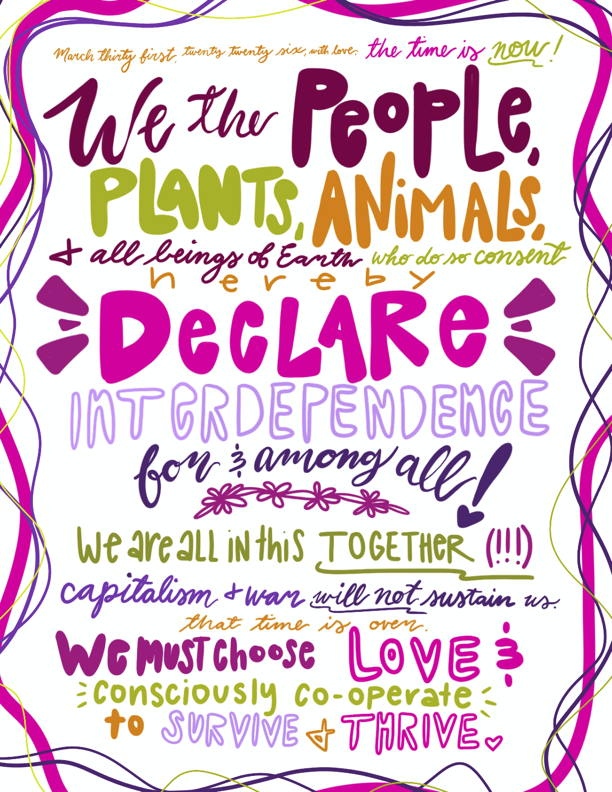 March thirty first, twenty twenty six, with love. the time is now!
We the PEOPLE,
PLANTS, ANiMALS,
& all beings of Earth who do so consent
hereby
DeCLARe
INTERDEPENDENCE
for & among all!
We are all in this TOGETHER (!!!)
capitalism + war will not sustain us.
that time is over.
We MUST choose LOVE &
consciously co-operate
to SURVIVE & THRIVE.